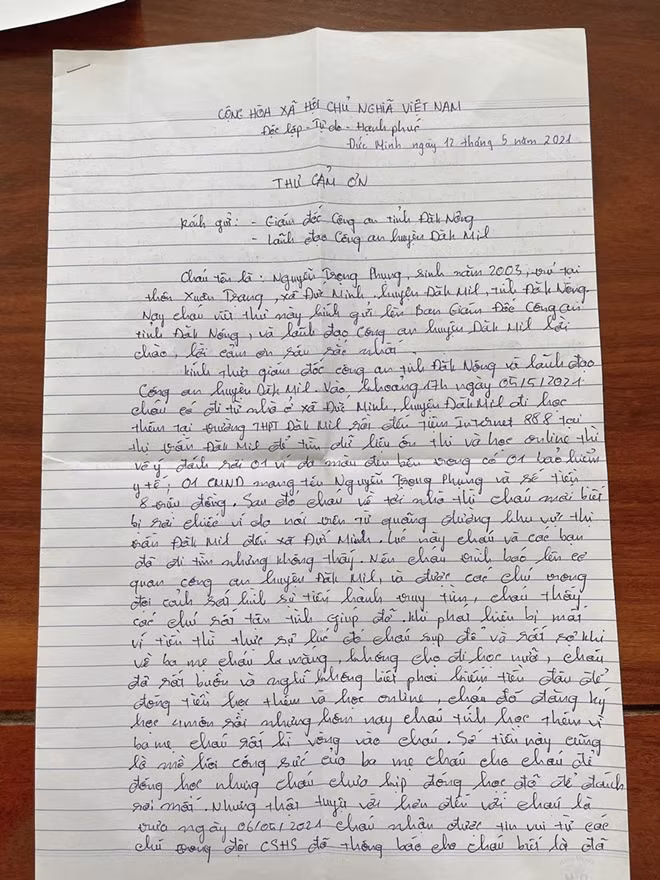 CỘNG HÒA XÃ HỘI CHỦ NGHĨA VIỆT NAM
Độc lập - Tự do - Hạnh phúc
Đức Minh ngày 12 tháng 5 năm 2021
THƯ CẢM ƠN
Kính gửi: - Giám đốc Công an tỉnh Đăk Nông
- Lãnh đạo Công an huyện Đăk Mil
Cháu tên là: Nguyễn Trọng Phụng, sinh năm 2003, trú tại
thôn Xuân Trang, xã Đức Minh, huyện Đăk Mil, tỉnh Đăk Nông.
Nay cháu viết thư này kính gửi lên Ban Giám Đốc Công an
tỉnh Đăk Nông, và lãnh đạo Công an huyện Đăk Mil lời
chào, lời cảm ơn sâu sắc nhất.
Kính thưa giám đốc công an tỉnh Đăk Nông và lãnh đạo
Công an huyện Đăk Mil. Vào khoảng 17h ngày 05/5/2021
cháu có đi từ nhà ở xã Đức Minh, huyện Đăk Mil đi học
thêm tại trường THPT Đăk Mil rồi đến tiệm Internet 888 tại
thị trấn Đăk Mil để tìm dữ liệu ôn thi và học online thì
vô ý đánh rơi 01 ví da màu đen bên trong có 01 bảo hiểm
y tế; 01 CMND mang tên Nguyễn Trọng Phụng và số tiền
8 triệu đồng. Sau đó cháu về tới nhà thì cháu mới biết
bị rơi chiếc ví da nói trên từ quãng đường khu vực thị
trấn Đăk Mil đến xã Đức Minh. Lúc này cháu và các bạn
đã đi tìm nhưng không thấy. Nên cháu trình báo lên cơ
quan công an huyện Đăk Mil, và được các chú trong
đội cảnh sát hình sự tiến hành truy tìm, cháu thấy
các chú rất tận tình giúp đỡ. Khi phát hiện bị mất
ví tiền thì thực sự lúc đó cháu sụp đổ và rất sợ khi
về ba mẹ cháu la mắng, không cho đi học nữa, cháu
đã rất buồn và nghĩ không biết phải kiếm tiền đâu để
đóng tiền học thêm và học online, cháu đã đăng ký
học 4 môn rồi nhưng hôm nay cháu tính học thêm vì
ba mẹ cháu rất kì vọng vào cháu. Số tiền này cũng
là mồ hôi công sức của ba mẹ cháu cho cháu để
đóng học nhưng cháu chưa kịp đóng học đã để đánh
rơi mất. Nhưng thật tuyệt vời hơn đến với cháu là
trưa ngày 06/05/2021 cháu nhận được tin vui từ các
chú trong đội CSHS đã thông báo cho cháu biết là đã